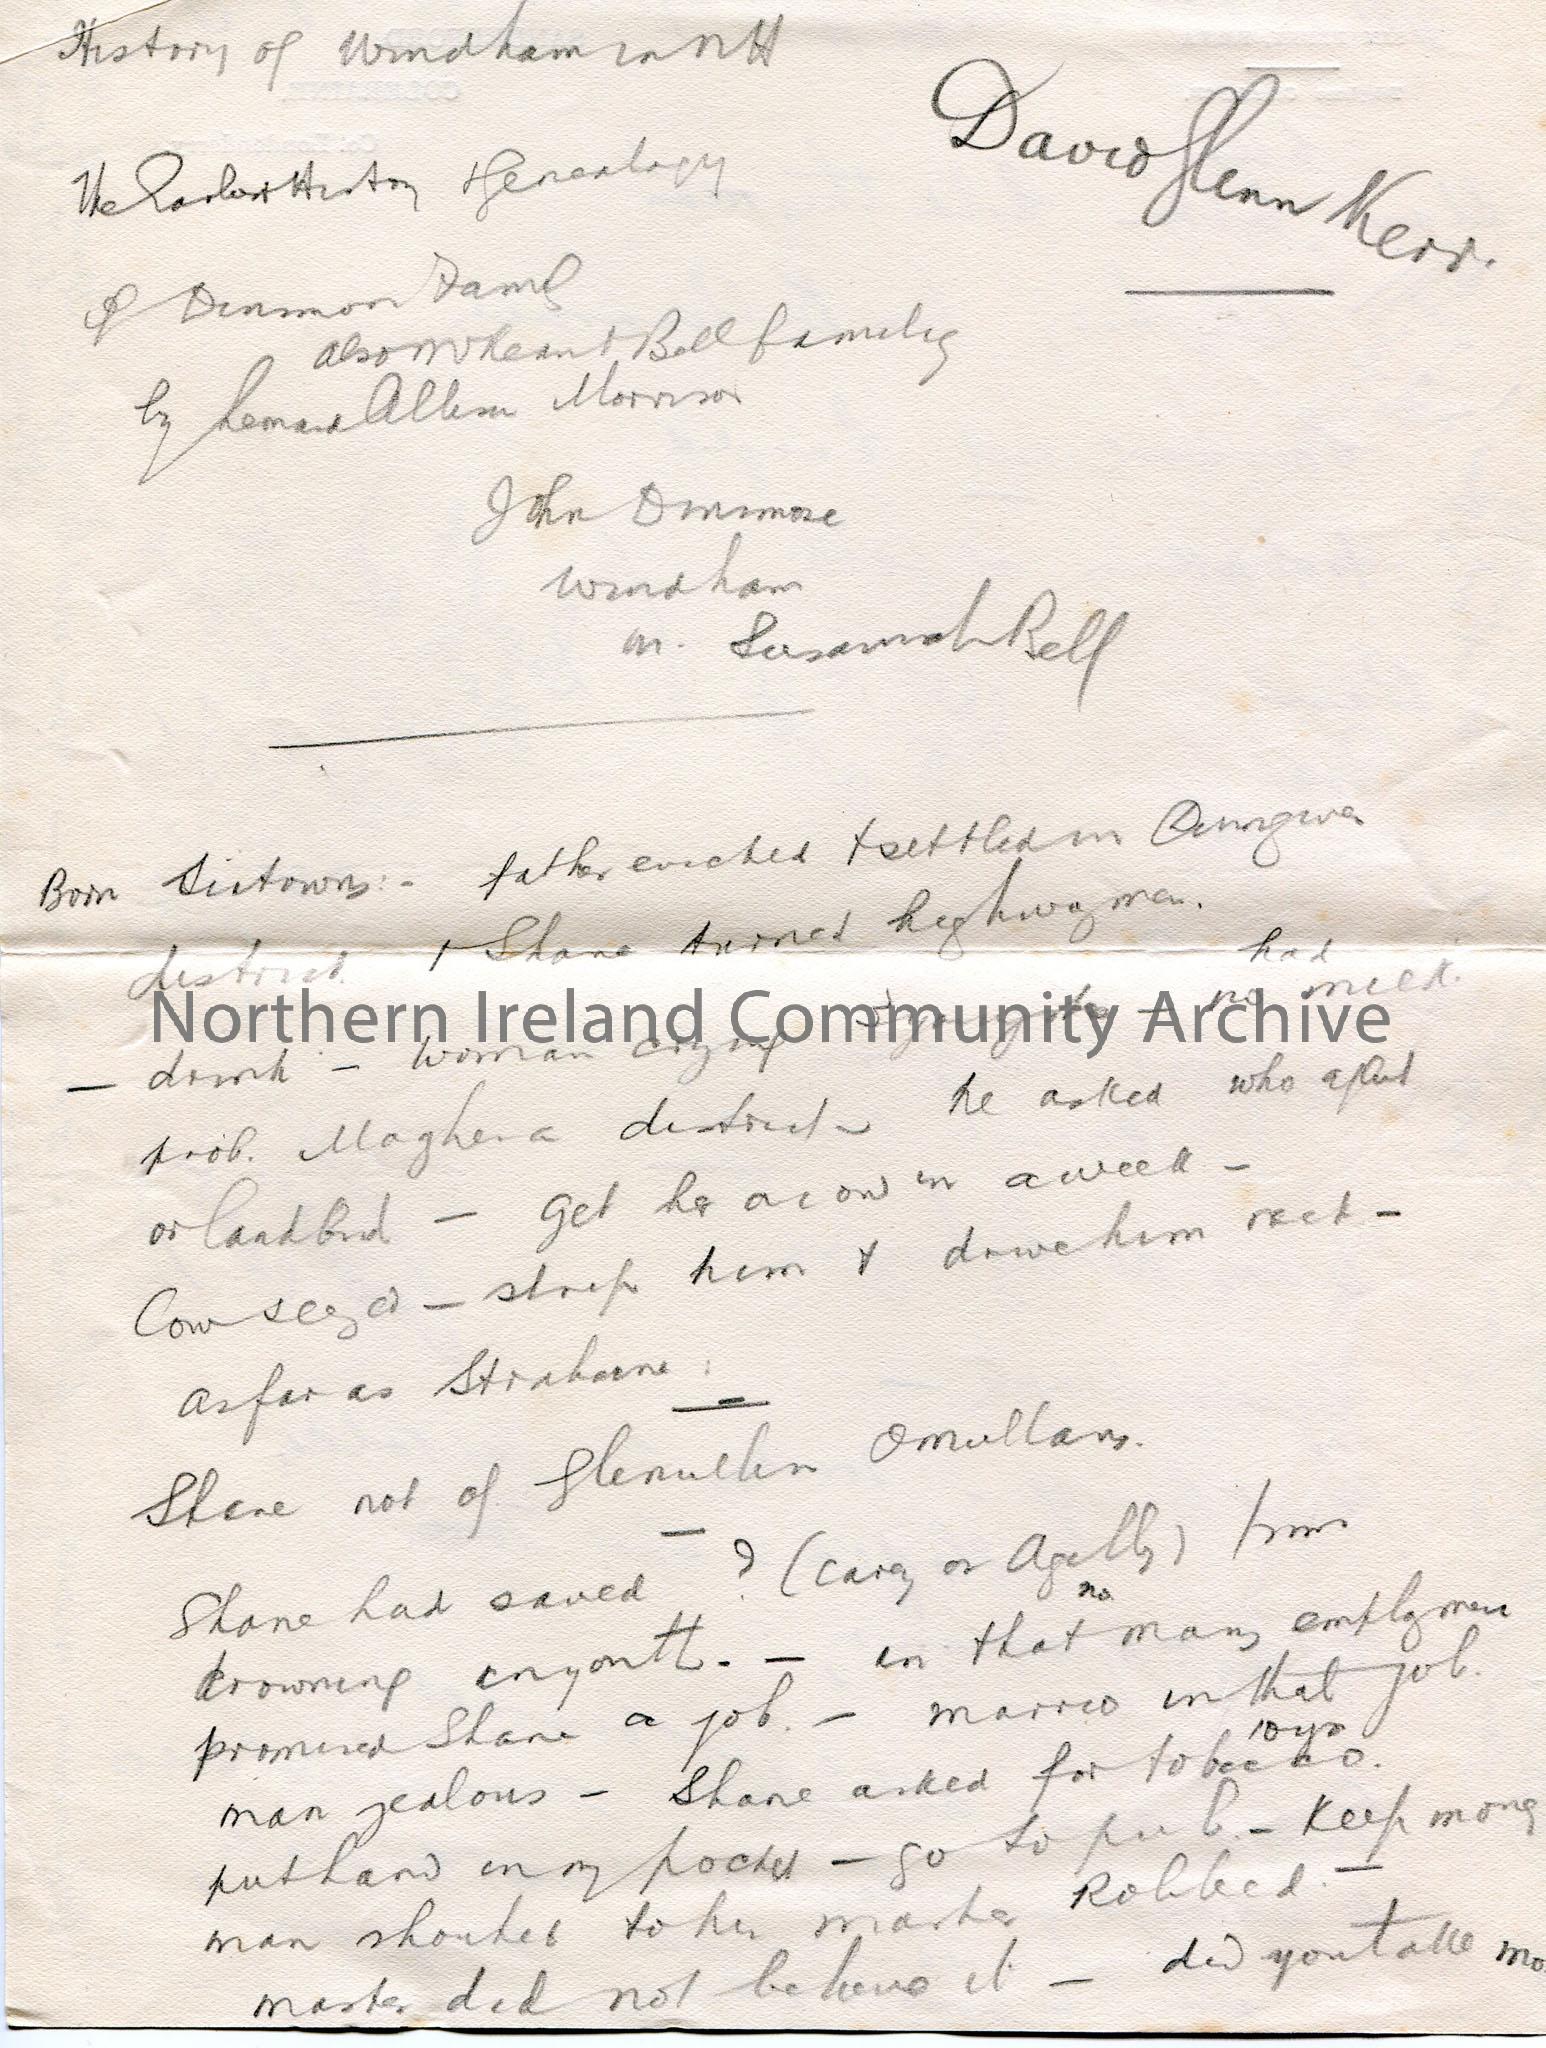 History of Windham in NH
David Glenn Kerr.
The Earliest History & Genealogy
of Dinsmoor Family
also McKean & Bell family
by Leonard Allison Morrison
John Dinsmore
Windham
m. Susannah Bell
Born Sixtowns:- father evicted & settled in Dungiven
district. & Shane turned highwayman.
— drink — woman crying — had no milk.
prob. Maghera district — he asked who agent
or landlord — Get her a cow in a week —
Cow seized — strip him & drive him
as far as Strabane:
Shane not of Glenullin Omullans.
Shane had saved ? (Carey or Agelly) from
drowning in youth. — in that no many employment
promised Shane a job. — married in that job.
man jealous — Shane asked for tobacco. 10 yrs
put hand in my pocket — go to pub. — Keep money
man shouted to his master Robbed. —
master did not believe it — did you take mo
Northern Ireland Community Archive